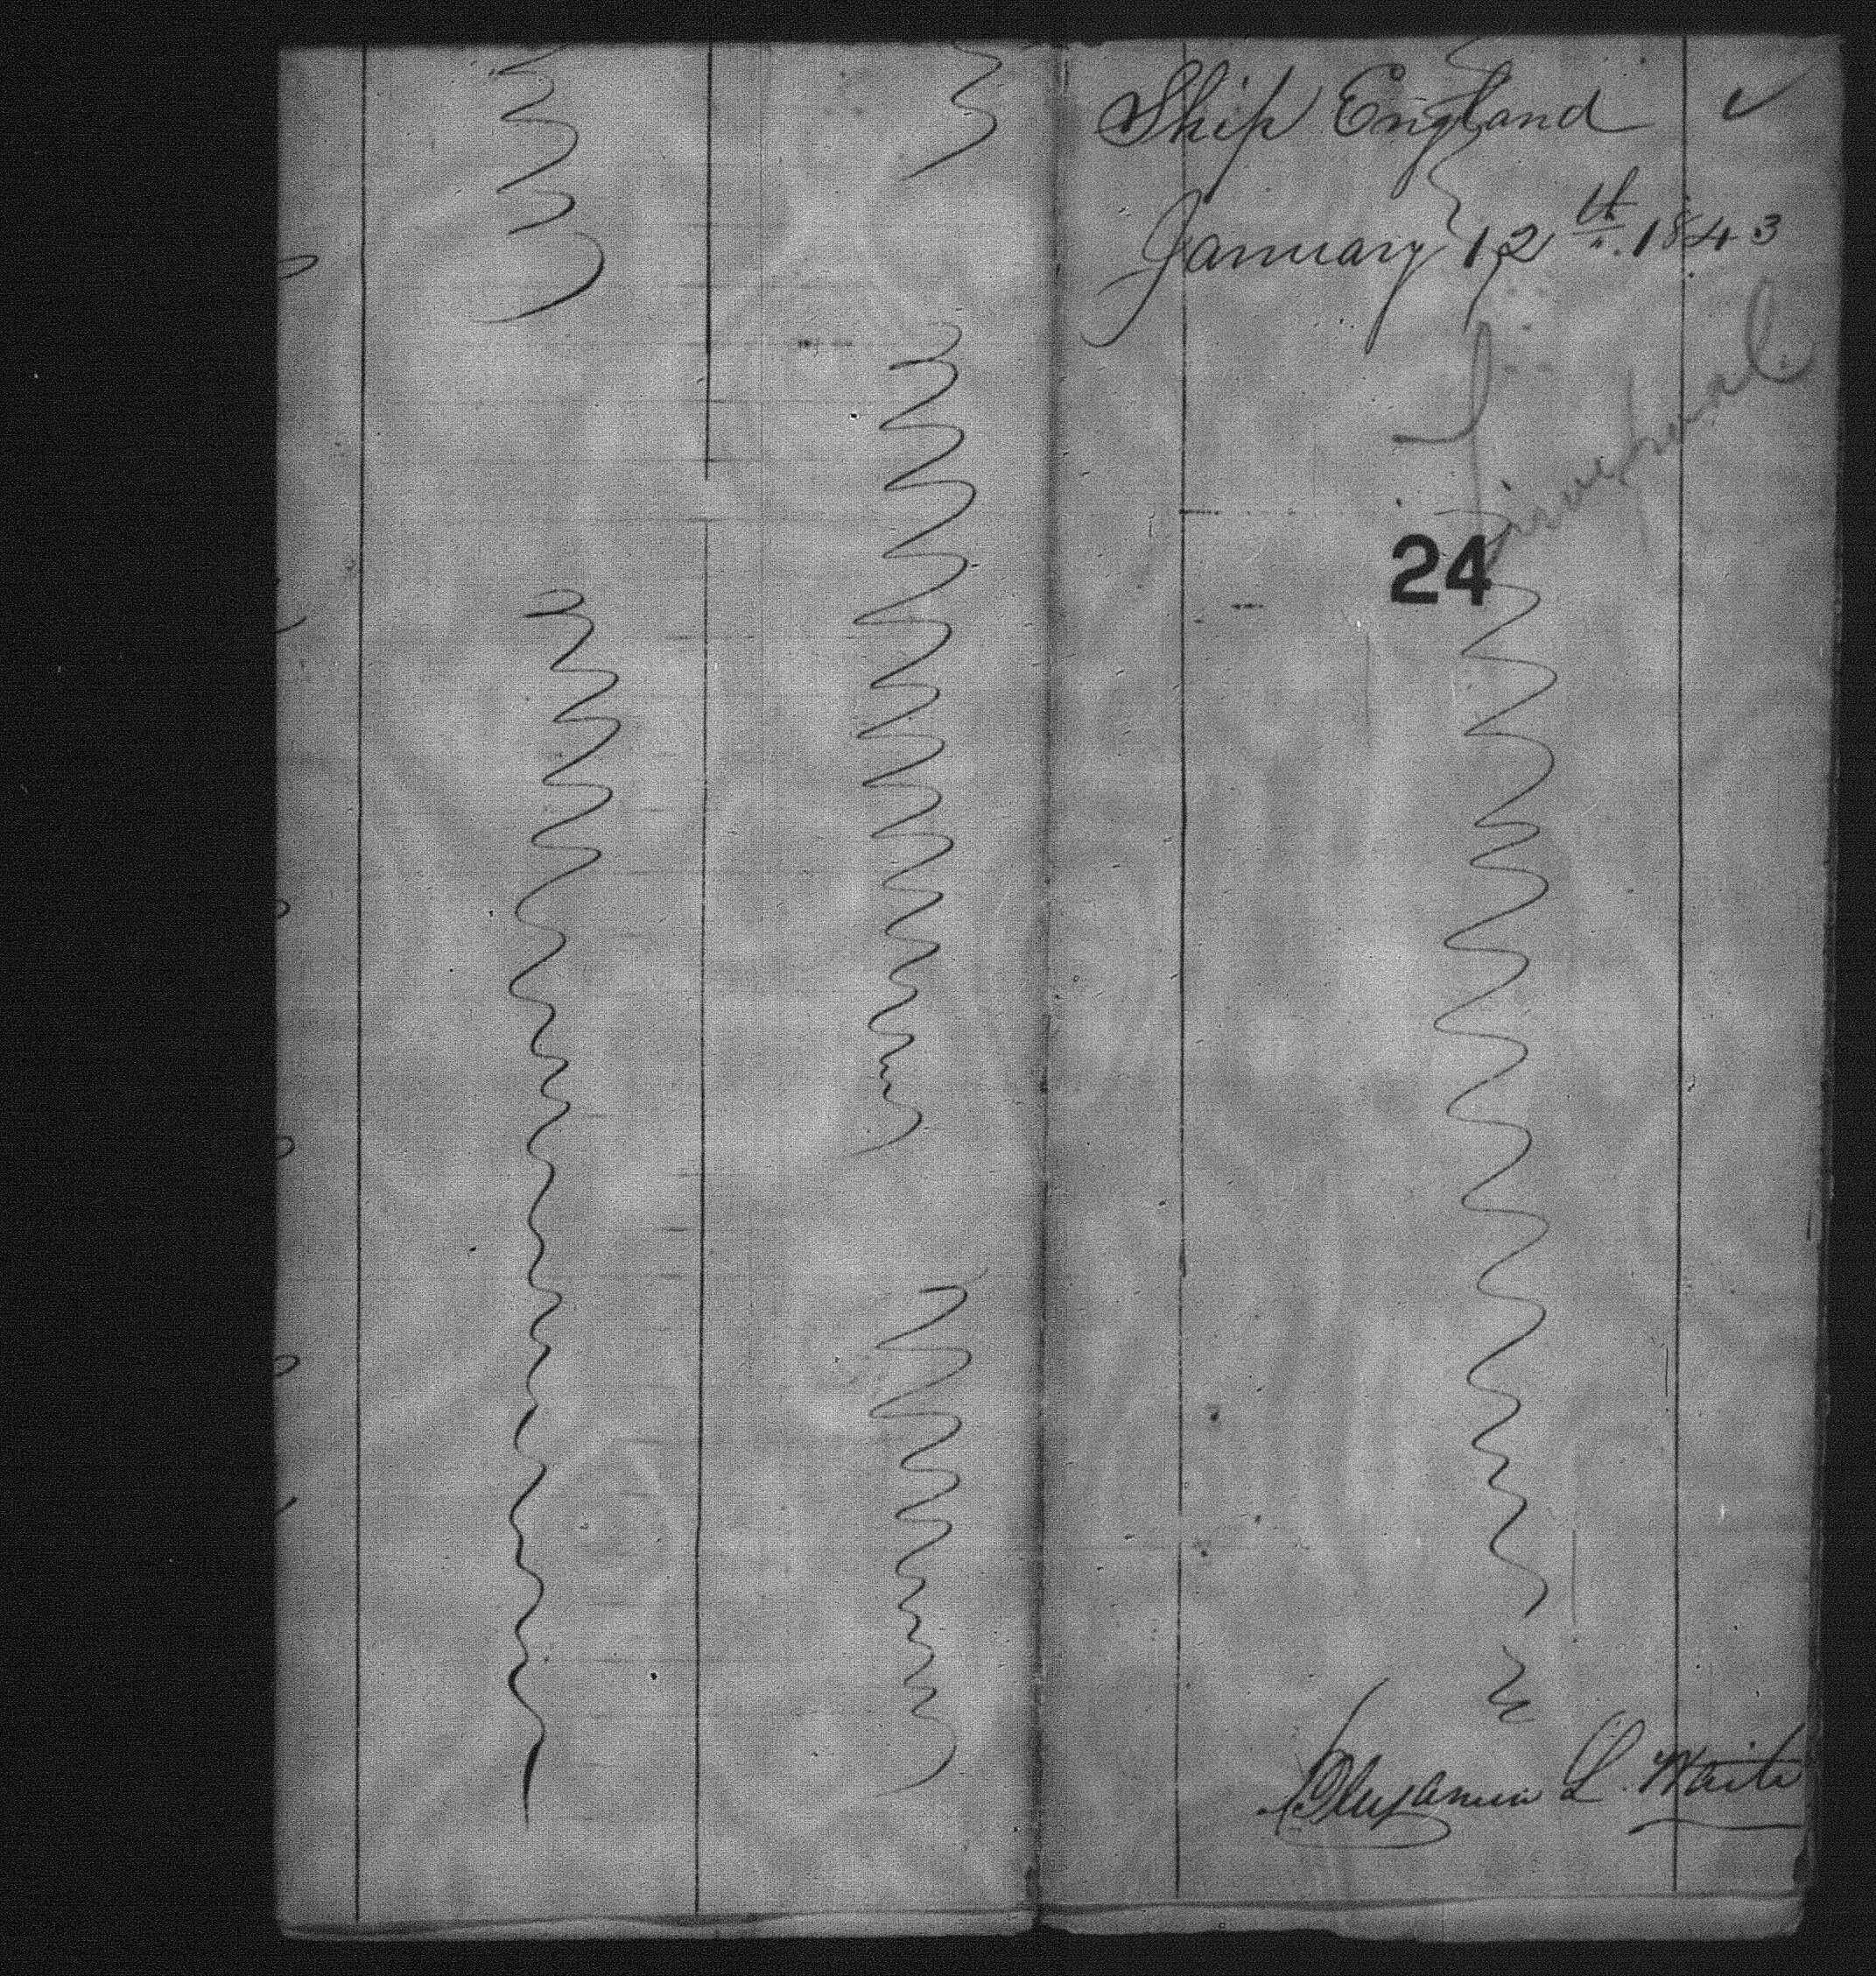 Ship England
January 12th. 1843
Liverpool
24
Benjamin L. Waite